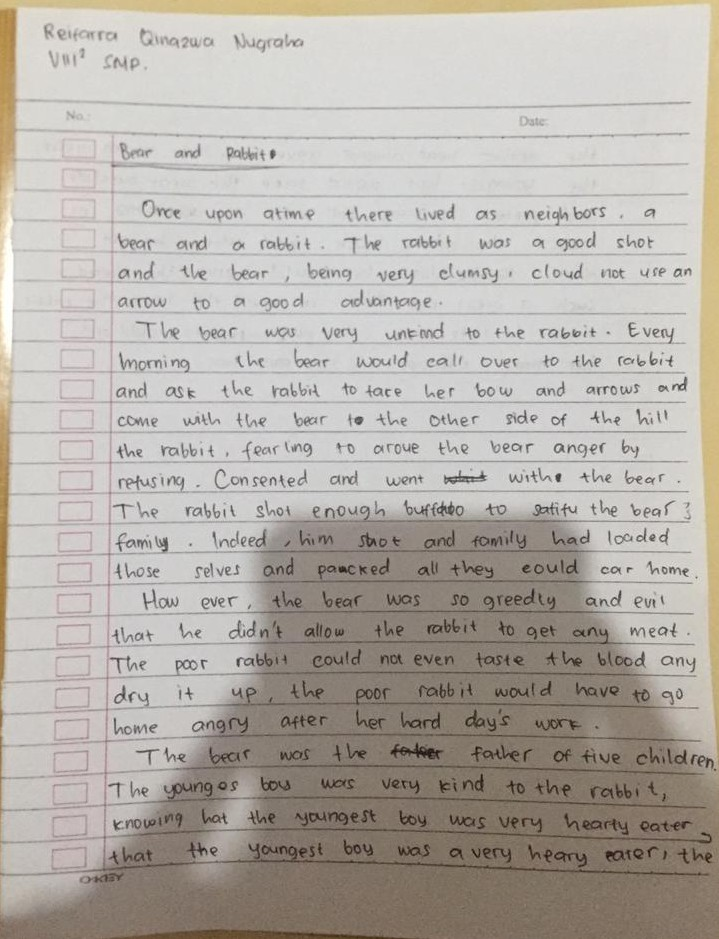 Reifarra Qinazwa Nugraha
VIII² SMP.
No.:
Date:
Bear and Rabbit.
Once upon atime there lived as neighbors, a
bear and a rabbit. The rabbit was a good shot
and the bear, being very clumsy, cloud not use an
arrow to a good advantage.
The bear was very unkind to the rabbit. Every
morning the bear would call over to the rabbit
and ask the rabbit to tare her bow and arrows and
come with the bear to the other side of the hill
the rabbit, fearing to aroue the bear anger by
refusing. Consented and went with the bear.
The rabbit shot enough to the bear
family. Indeed, him shot and family had loaded
those selves and pancked all they eould car home.
How ever, the bear was so greedly and evil
that he didn't allow the rabbit to get any meat.
The poor rabbit could not even taste the blood any
dry it up, the poor rabbit would have to go
home angry after her hard day's work.
The bear was the father of five children.
The younges boy was very kind to the rabbit,
knowing hat the youngest boy was very hearty eater,
that the youngest boy was a very heary eater, the
O-KEY